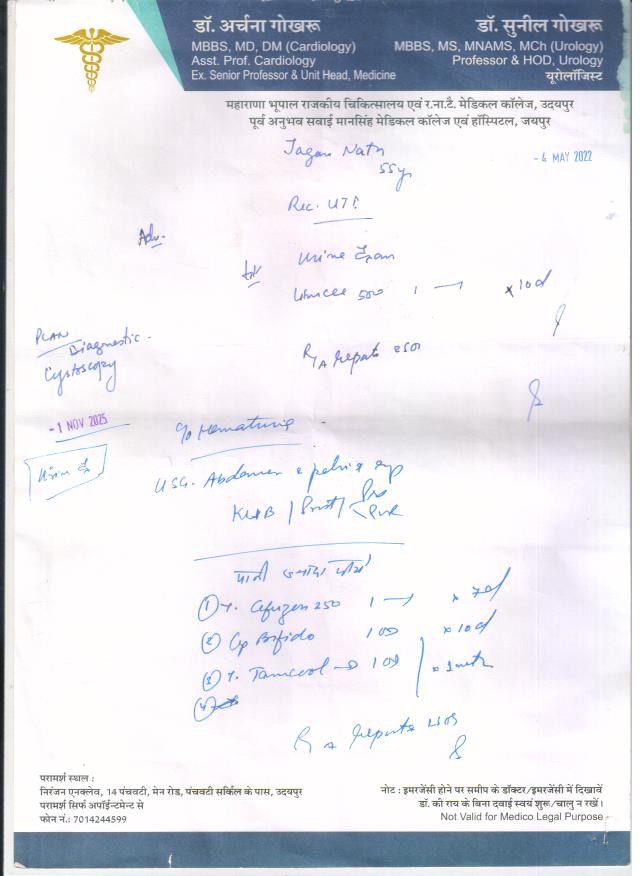 डॉ. अर्चना गोखरू
MBBS, MD, DM (Cardiology)
Asst. Prof. Cardiology
Ex. Senior Professor & Unit Head, Medicine
डॉ. सुनील गोखरू
MBBS, MS, MNAMS, MCh (Urology)
Professor & HOD, Urology
यूरोलॉजिस्ट
महाराणा भूपाल राजकीय चिकित्सालय एवं र.ना.टै. मेडिकल कॉलेज, उदयपुर
पूर्व अनुभव सवाई मानसिंह मेडिकल कॉलेज एवं हॉस्पिटल, जयपुर
- 4 MAY 2022
Jagan Nath
55y
Rec. UTI
Adv.
Urine Exam
500 1 — x 10d
PLAN
Diagnostic
Cystoscopy
R/A Reports
- 1 NOV 2025
c/o Hematuria
Urine
USG. Abdomen & pelvis
KUB / Prost / Pre
PVR
पानी ज्यादा पीयें
① T. 250 1 — x 7d
② Cap Bifido 1 OD x 10d
③ T. 1 OD x 1 mth
④
R/A Reports
परामर्श स्थल :
निरंजन एनक्लेव, 14 पंचवटी, मेन रोड, पंचवटी सर्किल के पास, उदयपुर
परामर्श सिर्फ अपॉईन्टमेन्ट से
फोन नं.: 7014244599
नोट : इमरजेंसी होने पर समीप के डॉक्टर/इमरजेंसी में दिखावें
डॉ. की राय के बिना दवाई स्वयं शुरू/चालु न रखें।
Not Valid for Medico Legal Purpose